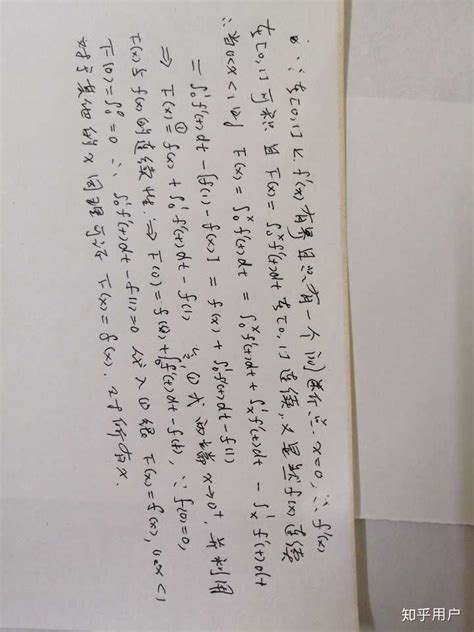 ∵ 在[0,1]上 f'(x) 有界且只有一个间断点 x=0, ∴ f'(x)
在[0,1]可积 且 F(x) = ∫₀ˣ f'(t)dt 在[0,1]连续, 又显然 f(x) 连续
∴ 当 0<x<1 时 F(x) = ∫₀ˣ f'(t)dt = ∫₀ˣ f'(t)dt + ∫ₓ¹ f'(t)dt - ∫ₓ¹ f'(t)dt
= ∫₀¹ f'(t)dt - [f(1) - f(x)] = f(x) + ∫₀¹ f'(t)dt - f(1)
⇒ F(x) ①= f(x) + ∫₀¹ f'(t)dt - f(1) ①式 两端 x→0⁺, 并利用
F(x) 与 f(x) 的连续性 ⇒ F(0) = f(0) + ∫₀¹ f'(t)dt - f(1), ∵ f(0)=0,
F(0) = ∫₀⁰ = 0 ∴ ∫₀¹ f'(t)dt - f(1) = 0 代入①得 F(x) = f(x), 0<x<1
对于其他的 x 同理 F(x) = f(x). 对所有 x.
知乎用户